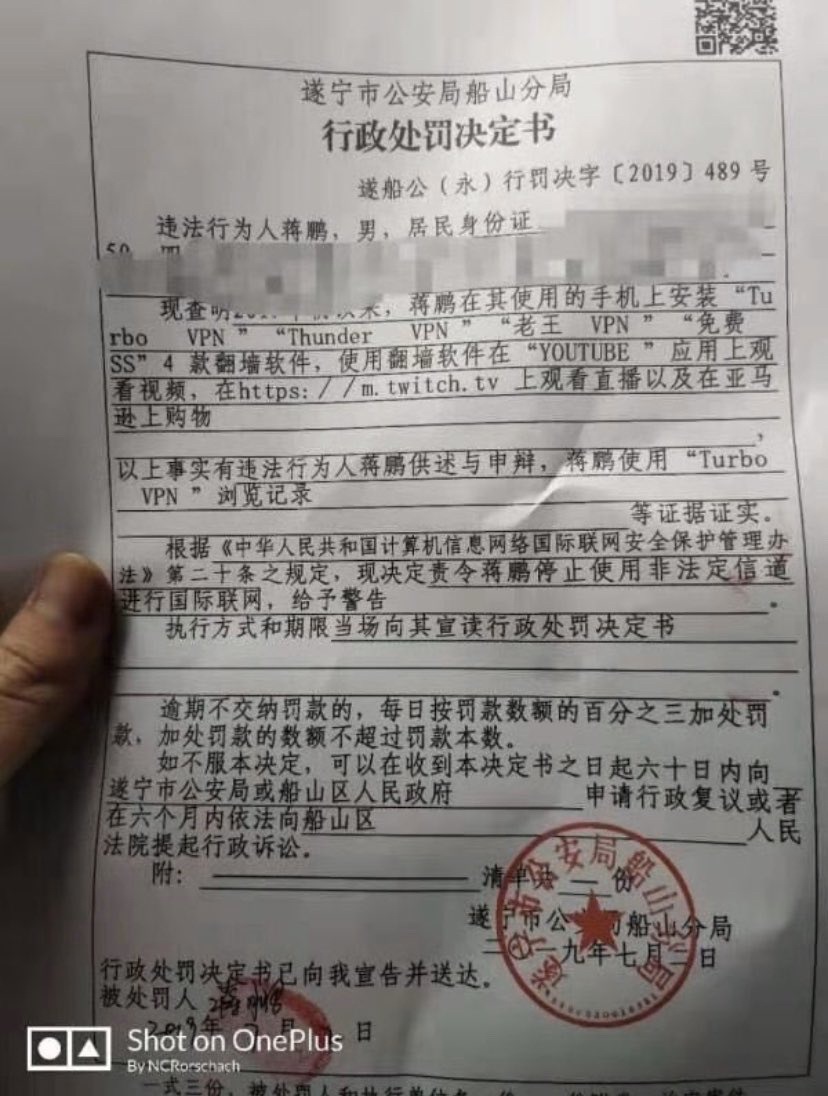 遂宁市公安局船山分局
行政处罚决定书
遂船公（永）行罚决字〔2019〕489 号
违法行为人蒋鹏，男，居民身份证
50
现查明 以来，蒋鹏在其使用的手机上安装“Tu
rbo VPN”“Thunder VPN”“老王 VPN”“免费
SS”4 款翻墙软件，使用翻墙软件在“YOUTUBE”应用上观
看视频，在https://m.twitch.tv 上观看直播以及在亚马
逊上购物
，
以上事实有违法行为人蒋鹏供述与申辩，蒋鹏使用“Turbo
VPN”浏览记录
等证据证实。
根据《中华人民共和国计算机信息网络国际联网安全保护管理办
法》第二十条之规定，现决定责令蒋鹏停止使用非法定信道
进行国际联网，给予警告 。
执行方式和期限当场向其宣读行政处罚决定书
。
逾期不交纳罚款的，每日按罚款数额的百分之三加处罚
款，加处罚款的数额不超过罚款本数。
如不服本决定，可以在收到本决定书之日起六十日内向
遂宁市公安局或船山区人民政府 申请行政复议或者
在六个月内依法向船山区 人民
法院提起行政诉讼。
附： 清单共 份
遂宁市公安局船山分局
二〇一九年七月二日
遂宁市公安局船山分局
行政处罚决定书已向我宣告并送达。
被处罚人 蒋鹏
2019年7月 日
Shot on OnePlus
By NCRorschach
一式三份，被处罚人和执行单位各一份